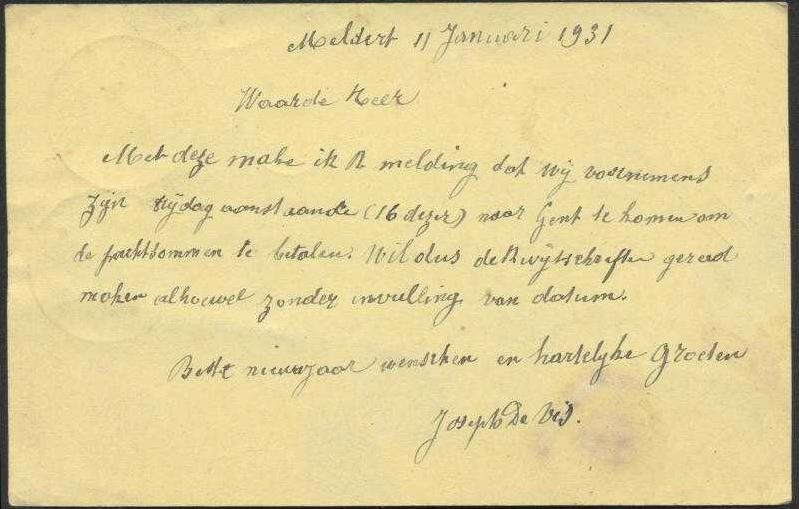 Meldert 11 Januari 1931
Waarde Heer
Met deze make ik U melding dat wij voornemens
zijn vrijdag aanstaande (16 dezer) naar Gent te komen om
de pachtsommen te betalen. Wil dus de kwijtschriften gereed
maken alhoewel zonder invulling van datum.
Beste nieuwjaar wenschen en hartelijke Groeten
Joseph De Vis.